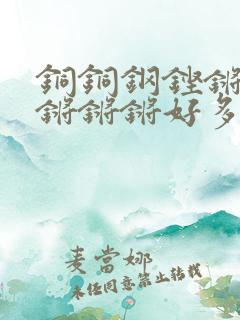 銅銅鋼鏗鏘
鏘鏘鏘好多
麦當娜
未任同意禁止转载